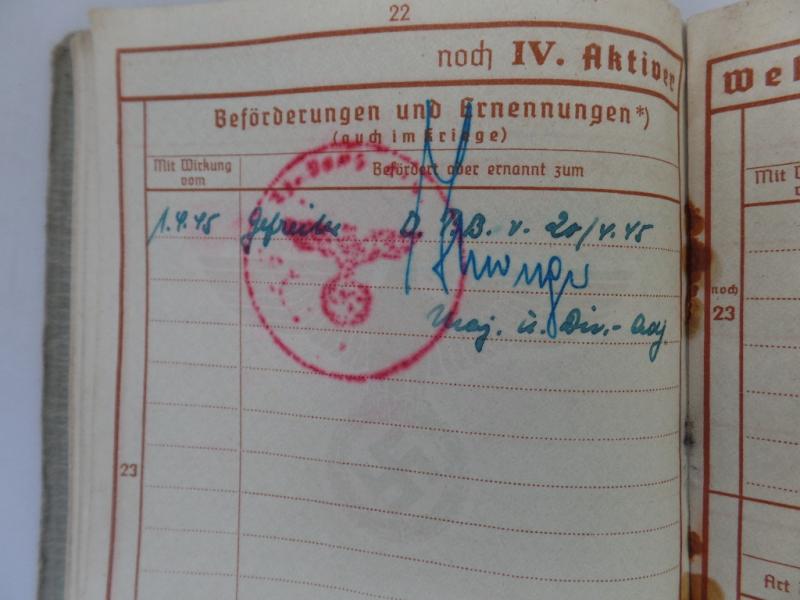 22
noch IV. Aktiver
Beförderungen und Ernennungen*)
(auch im Kriege)
Mit Wirkung
vom
Befördert oder ernannt zum
1.4.45 Gefreiter D. B. v. 20/4.45
Maj. u. Div.-Adj.
23
We
Mit
noch
23
Art